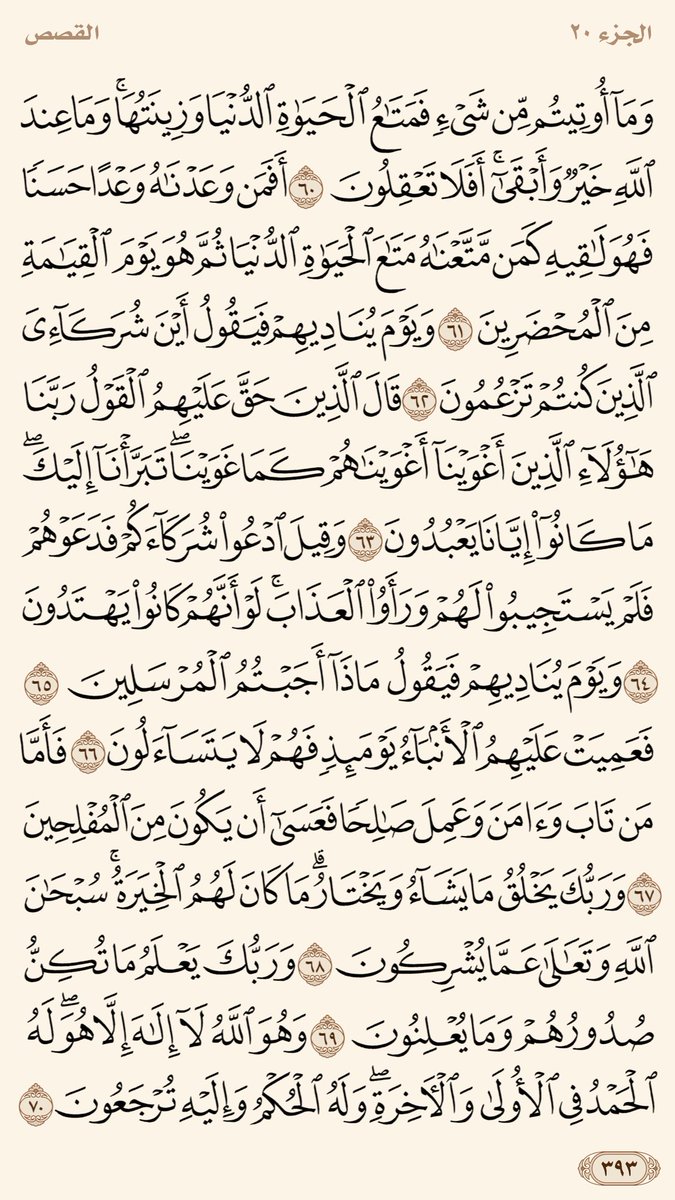 الجزء ٢٠
القصص
وَمَآ أُوتِيتُم مِّن شَىْءٍ فَمَتَٰعُ ٱلْحَيَوٰةِ ٱلدُّنْيَا وَزِينَتُهَا ۚ وَمَا عِندَ
ٱللَّهِ خَيْرٌ وَأَبْقَىٰٓ ۚ أَفَلَا تَعْقِلُونَ ٦٠ أَفَمَن وَعَدْنَٰهُ وَعْدًا حَسَنًا
فَهُوَ لَٰقِيهِ كَمَن مَّتَّعْنَٰهُ مَتَٰعَ ٱلْحَيَوٰةِ ٱلدُّنْيَا ثُمَّ هُوَ يَوْمَ ٱلْقِيَٰمَةِ
مِنَ ٱلْمُحْضَرِينَ ٦١ وَيَوْمَ يُنَادِيهِمْ فَيَقُولُ أَيْنَ شُرَكَآءِىَ
ٱلَّذِينَ كُنتُمْ تَزْعُمُونَ ٦٢ قَالَ ٱلَّذِينَ حَقَّ عَلَيْهِمُ ٱلْقَوْلُ رَبَّنَا
هَٰٓؤُلَآءِ ٱلَّذِينَ أَغْوَيْنَآ أَغْوَيْنَٰهُمْ كَمَا غَوَيْنَا ۖ تَبَرَّأْنَآ إِلَيْكَ ۖ
مَا كَانُوٓا۟ إِيَّانَا يَعْبُدُونَ ٦٣ وَقِيلَ ٱدْعُوا۟ شُرَكَآءَكُمْ فَدَعَوْهُمْ
فَلَمْ يَسْتَجِيبُوا۟ لَهُمْ وَرَأَوُا۟ ٱلْعَذَابَ ۚ لَوْ أَنَّهُمْ كَانُوا۟ يَهْتَدُونَ
٦٤ وَيَوْمَ يُنَادِيهِمْ فَيَقُولُ مَاذَآ أَجَبْتُمُ ٱلْمُرْسَلِينَ ٦٥
فَعَمِيَتْ عَلَيْهِمُ ٱلْأَنۢبَآءُ يَوْمَئِذٍ فَهُمْ لَا يَتَسَآءَلُونَ ٦٦ فَأَمَّا
مَن تَابَ وَءَامَنَ وَعَمِلَ صَٰلِحًا فَعَسَىٰٓ أَن يَكُونَ مِنَ ٱلْمُفْلِحِينَ
٦٧ وَرَبُّكَ يَخْلُقُ مَا يَشَآءُ وَيَخْتَارُ ۗ مَا كَانَ لَهُمُ ٱلْخِيَرَةُ ۚ سُبْحَٰنَ
ٱللَّهِ وَتَعَٰلَىٰ عَمَّا يُشْرِكُونَ ٦٨ وَرَبُّكَ يَعْلَمُ مَا تُكِنُّ
صُدُورُهُمْ وَمَا يُعْلِنُونَ ٦٩ وَهُوَ ٱللَّهُ لَآ إِلَٰهَ إِلَّا هُوَ ۖ لَهُ
ٱلْحَمْدُ فِى ٱلْأُولَىٰ وَٱلْءَاخِرَةِ ۖ وَلَهُ ٱلْحُكْمُ وَإِلَيْهِ تُرْجَعُونَ ٧٠
٣٩٣